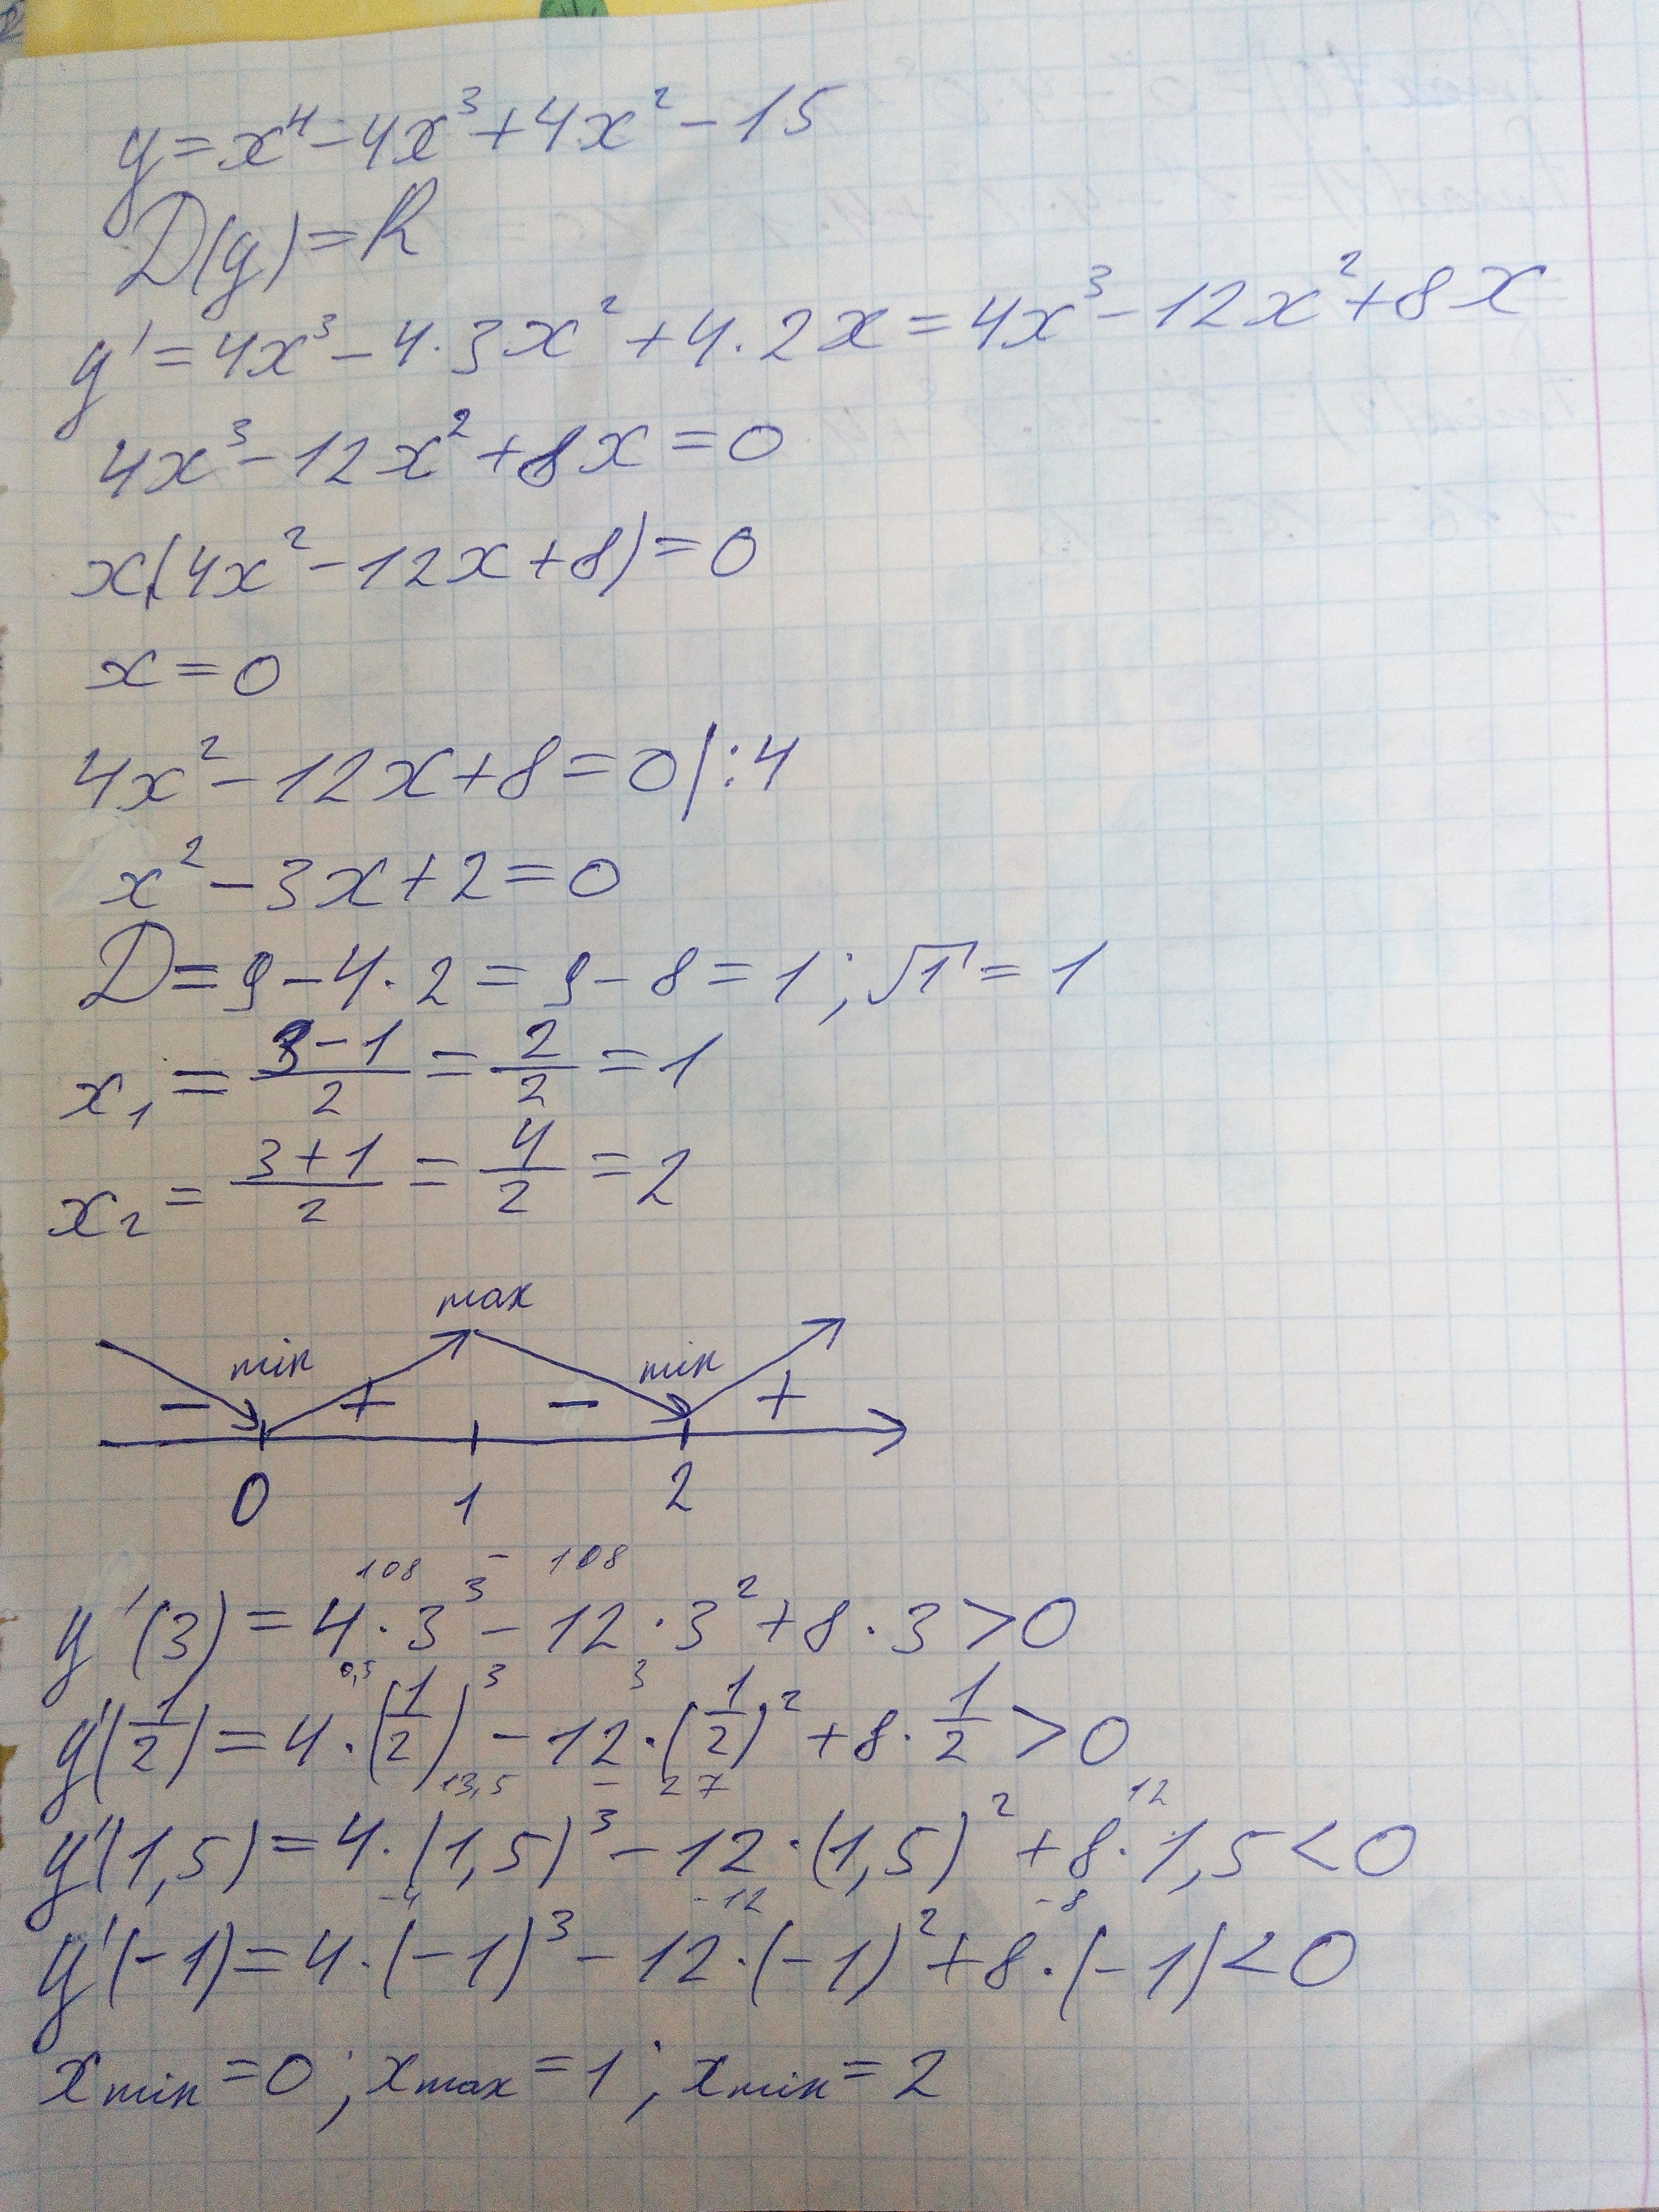 y = x⁴ - 4x³ + 4x² - 15
D(y) = R
y' = 4x³ - 4·3x² + 4·2x = 4x³ - 12x² + 8x
4x³ - 12x² + 8x = 0
x(4x² - 12x + 8) = 0
x = 0
4x² - 12x + 8 = 0 |:4
x² - 3x + 2 = 0
D = 9 - 4·2 = 9 - 8 = 1; √1 = 1
x₁ = (3-1)/2 = 2/2 = 1
x₂ = (3+1)/2 = 4/2 = 2
max
min min
- + - +
0 1 2
108 - 108
y'(3) = 4·3³ - 12·3² + 8·3 > 0
0,5 3
y'(1/2) = 4·(1/2)³ - 12·(1/2)² + 8·1/2 > 0
13,5 - 27 12
y'(1,5) = 4·(1,5)³ - 12·(1,5)² + 8·1,5 < 0
-4 -12 -8
y'(-1) = 4·(-1)³ - 12·(-1)² + 8·(-1) < 0
xmin = 0; xmax = 1; xmin = 2